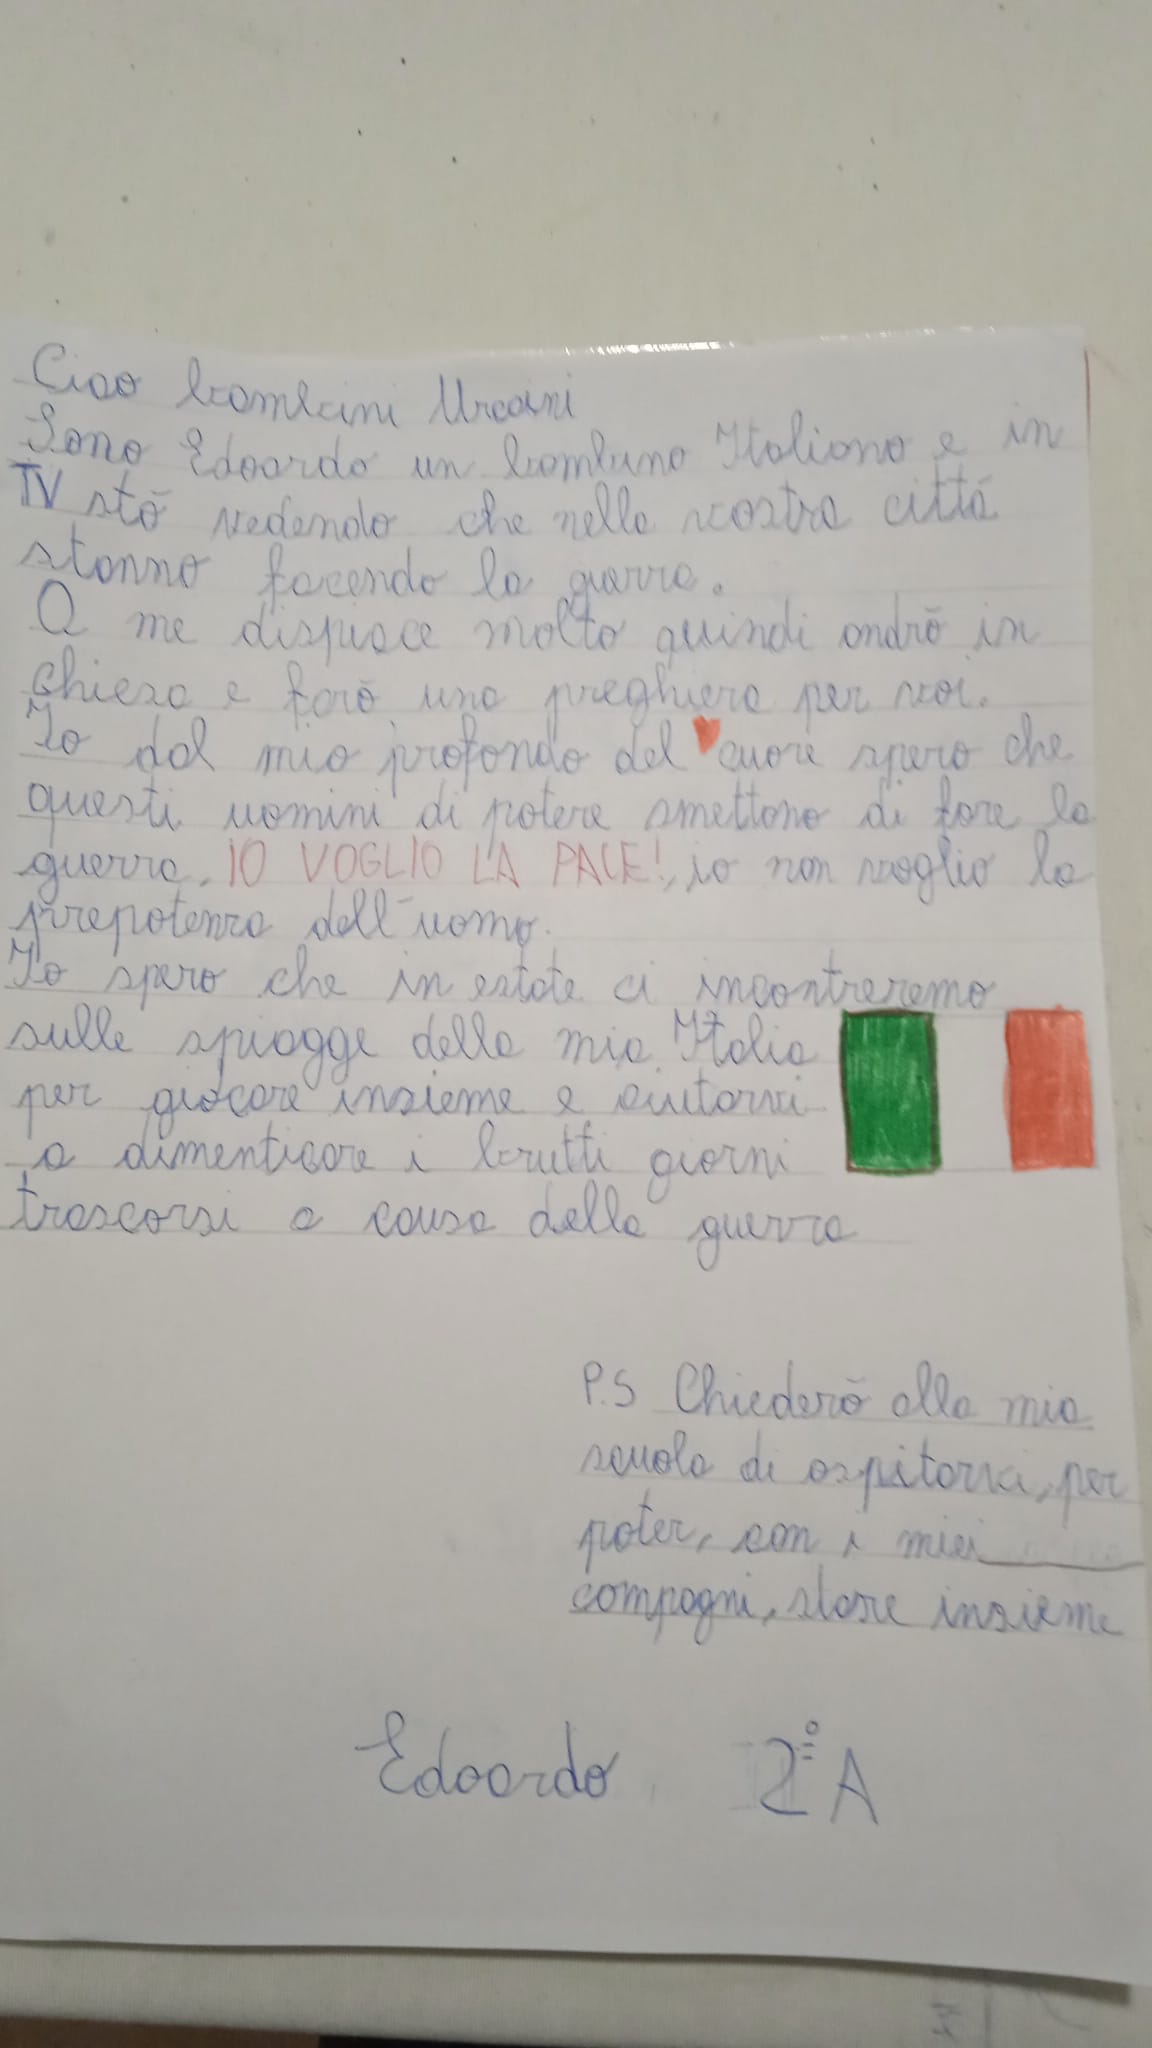 Ciao bambini Ucraini
Sono Edoardo un bambino Italiano e in
TV stò vedendo che nella vostra città
stanno facendo la guerra.
A me dispiace molto quindi andrò in
chiesa e farò una preghiera per voi.
Io dal mio profondo del cuore spero che
questi uomini di potere smettono di fare la
guerra. IO VOGLIO LA PACE!, io non voglio la
prepotenza dell'uomo.
Io spero che in estate ci incontreremo
sulle spiagge della mia Italia
per giocare insieme e aiutarvi
a dimenticare i brutti giorni
trascorsi a causa della guerra
P.S Chiederò alla mia
scuola di ospitarvi, per
poter, con i miei
compagni, stare insieme
Edoardo 2° A